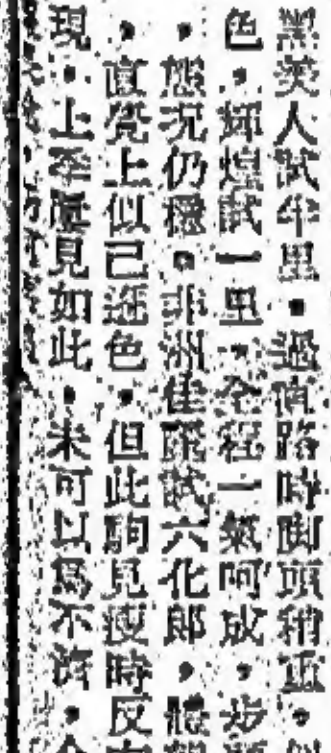 黑美人試半里。過直路時脚頭稍重。
色。輝煌試一里。全程一氣呵成。步
。態況仍穩。非洲佳麗試六化郎。體
。直覺上似已遜色。但此駒見瘦時反
現。上季屢見如此。未可以爲不濟。